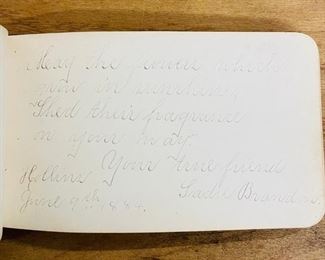 May the flowers which
now in sunshine
Shed their fragrance
on your way.
Your true friend
Hollins Sadie Brandon
June 9th 1884.